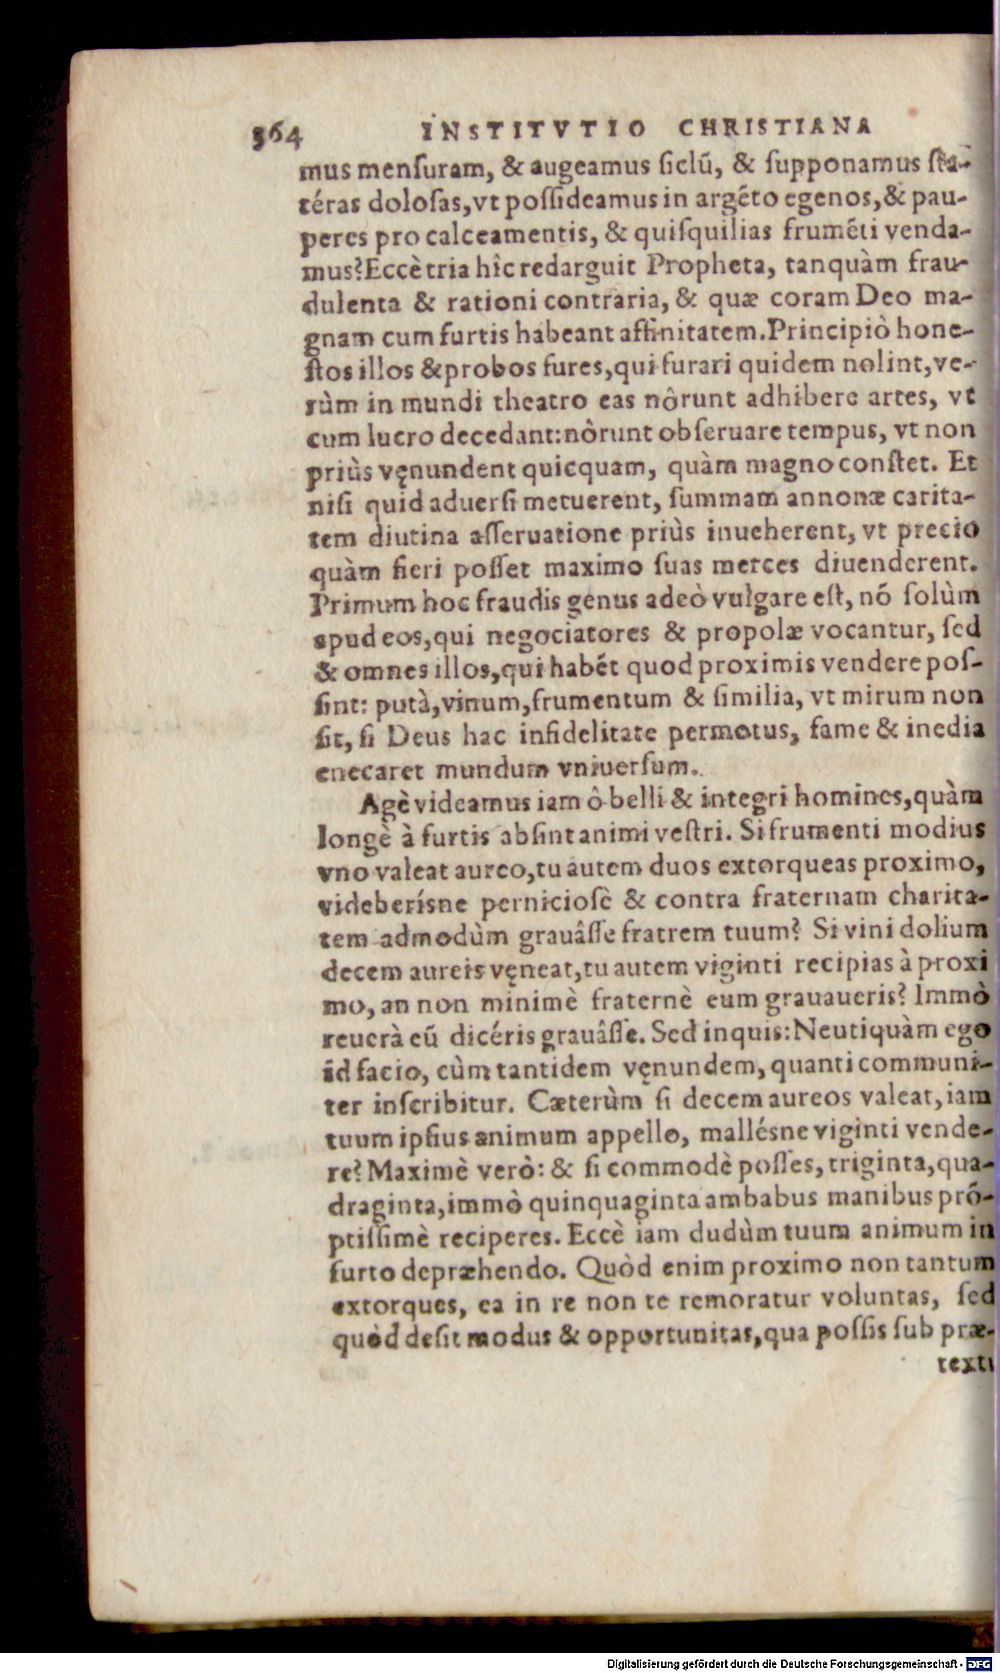 364 INSTITVTIO CHRISTIANA
mus menſuram, & augeamus ſiclū, & ſupponamus ſta-
téras doloſas,vt poſſideamus in argēto egenos,& pau-
peres pro calceamentis, & quiſquilias frumēti venda-
mus?Eccè tria hîc redarguit Propheta, tanquàm frau-
dulenta & rationi contraria, & quæ coram Deo ma-
gnam cum furtis habeant affinitatem.Principiò hone-
ſtos illos &probos fures,qui furari quidem nolint,ve-
rùm in mundi theatro eas nôrunt adhibere artes, vt
cum lucro decedant:nôrunt obſeruare tempus, vt non
priùs vęnundent quicquam, quàm magno conſtet. Et
niſi quid aduerſi metuerent, ſummam annonæ carita-
tem diutina aſſeruatione priùs inueherent, vt precio
quàm fieri poſſet maximo ſuas merces diuenderent.
Primum hoc fraudis genus adeò vulgare eſt, nō ſolùm
apud eos,qui negociatores & propolæ vocantur, ſed
& omnes illos,qui habēt quod proximis vendere poſ-
ſint: putà,vinum,frumentum & ſimilia, vt mirum non
ſit, ſi Deus hac infidelitate permotus, fame & inedia
enecaret mundum vniuerſum.
Agè videamus iam ô belli & integri homines,quàm
longè à furtis abſint animi veſtri. Si frumenti modius
vno valeat aureo,tu autem duos extorqueas proximo,
videberíſne pernicioſè & contra fraternam charita-
tem admodùm grauâſſe fratrem tuum? Si vini dolium
decem aureis vęneat,tu autem viginti recipias à proxi
mo, an non minimè fraternè eum grauaueris? Immò
reuerà eū dicéris grauâſſe. Sed inquis:Neutiquàm ego
id facio, cùm tantidem vęnundem, quanti communi-
ter inſcribitur. Cæterùm ſi decem aureos valeat, iam
tuum ipſius animum appello, malléſne viginti vende-
re? Maximè verò: & ſi commodè poſſes, triginta,qua-
draginta,immò quinquaginta ambabus manibus prō-
ptiſſimè reciperes. Eccè iam dudùm tuum animum in
furto depræhendo. Quòd enim proximo non tantum
extorques, ea in re non te remoratur voluntas, ſed
quòd deſit modus & opportunitas,qua poſſis ſub præ-
textu
Digitalisierung gefördert durch die Deutsche Forschungsgemeinschaft - DFG